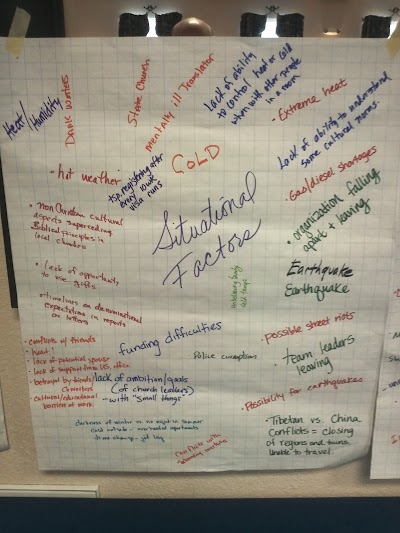 Heat/
Humidity
Dank winters
State Church
mentally ill translator
Lack of ability
to control heat or cold
when with other people
in a room
• Extreme heat
Lack of ability to understand
some cultural norms
• hot weather
COLD
registering after
every
visa runs
• Gas/diesel shortages
• Non Christian cultural
aspects superceding
Biblical principles in
local churches
Situational
Factors
• organization falling
apart + leaving
• Lack of opportunity
to use gifts
Earthquake
Earthquake
• timelines or denominational
expectations in reports
or letters
funding difficulties
• Possible street riots
• conflicts w/ friends
• heat!
• lack of potential spouse
• lack of support from U.S. office
• betrayal by friends/
churches
• cultural/educational
barriers at work
Police corruption
• Team leaders
leaving
lack of ambition/goals
(of church leaders)
- with "small things"
• Possibility for earthquakes
darkness of winter vs. no night in summer
cold outside -
time change - jet lag
conflicts with
• Tibetan vs. China
Conflicts = closing
of regions and towns.
Unable to travel.